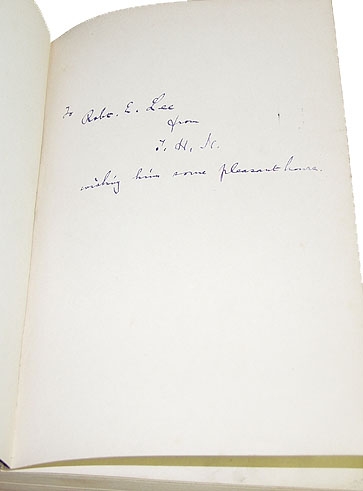 To Robt. E. Lee
from
T. H. K.
wishing him some pleasant hours.